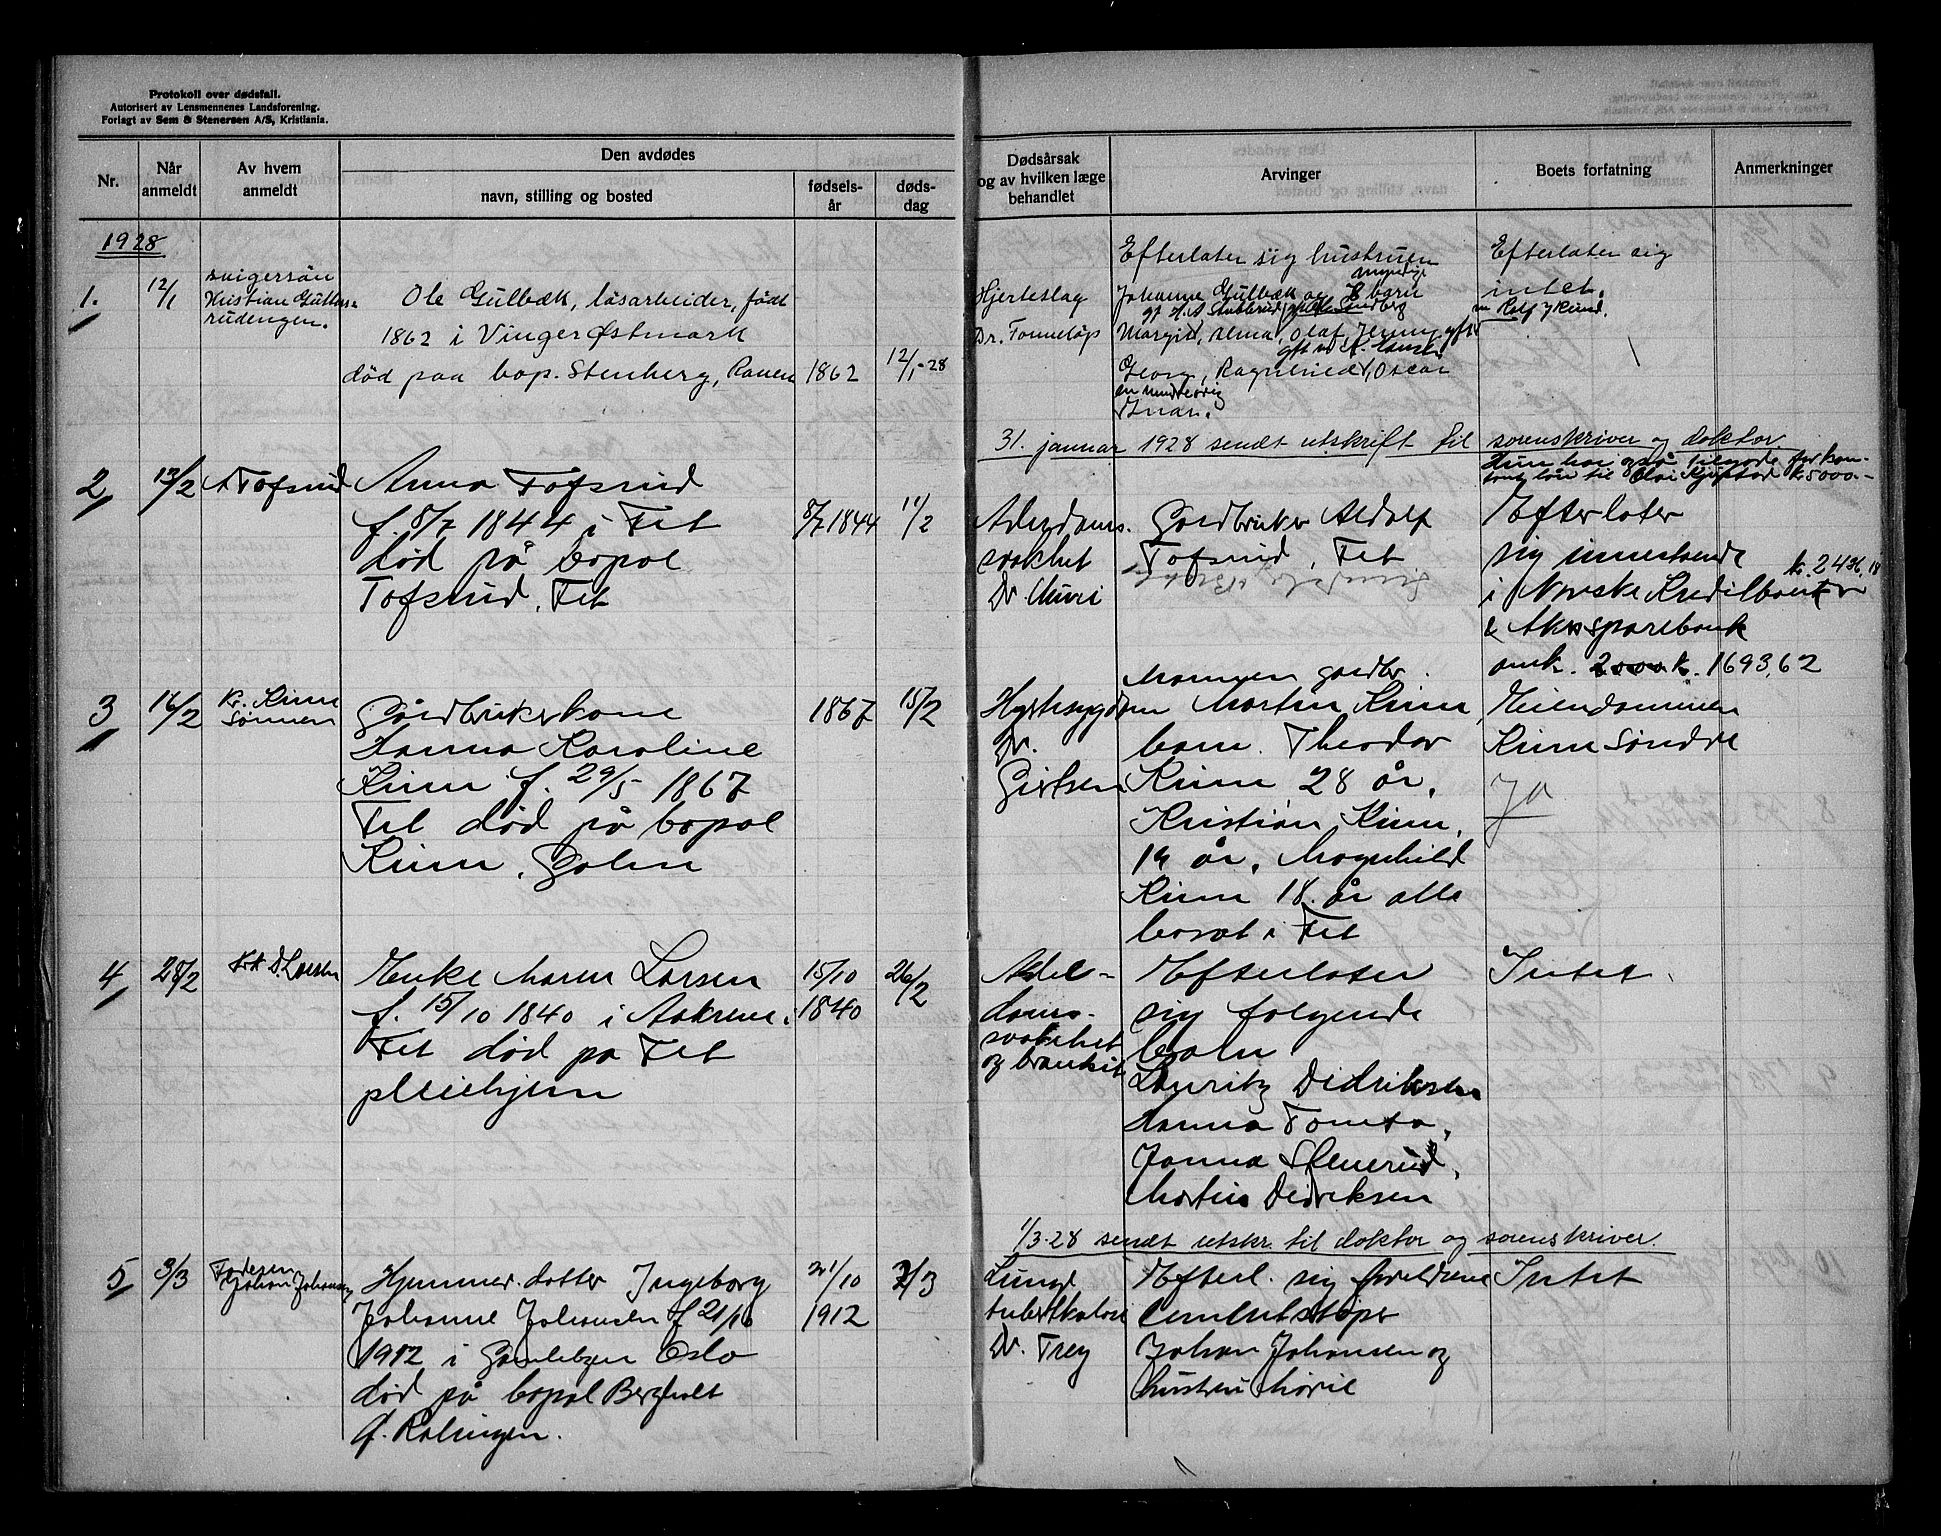 Protokoll over dødsfall.
Autorisert av Lensmennenes Landsforening.
Forlagt av Sem & Stenersen A/S, Kristiania.
Nr.
Når anmeldt
Av hvem anmeldt
Den avdødes
navn, stilling og bosted
fødsels-år
døds-dag
Dødsårsak og av hvilken læge behandlet
Arvinger
Boets forfatning
Anmerkninger
1928
1.
12/1
svigersøn
Kristian
rudengen.
Ole Gulbæk, løsarbeider, født
1862 i Vinger Østmark
død paa bop. Stenberg,
1862
12/1-28
Hjerteslag
Dr. Tonneløp
Efterlater sig hustruen
myndige
Johanne Gulbæk og barn
Margit, Alma, Olaf, Jenny gft
Georg, Ragnhild, Oscar
en mindreårig
Einar.
Efterlater sig
intet.
31. januar 1928 sendt utskrift til sorenskriver og doktor.
2
13/2
A Tofsrud
Anna Tofsrud
f. 8/7 1844 i Fet
død på bopel
Tofsrud, Fet
8/7 1844
11/2
Alerdoms-
svakhet
Dr
Gårdbruker Adolf
Tofsrud, Fet
Hun har også tilgode for kon-
kr 5000.-
Efterlater
sig innestående
i Norske Kreditbank kr. 2436,18
& Akers sparebank
omk. 2000 k. 1693,62
3
16/2
Kr. Rime
Sønnen
Gårdbrukerkone
Hanna Karoline
Rime f. 29/5 1867
Fet død på bopel
Rime, Galen
1867
15/2
Hjertesygdom
Dr.
Girtsen
Mannen gårdbr.
Martin Rime,
barn. Theodor
Rime 28 år,
Kristian Rime,
år, Magnhild
Rime 18 år alle
bosat i Fet
Eiendommen
Rime Søndre
Ja
4
28/2
D. Larsen
Enke Maren Larsen
f. 15/10 1840 i Aakrene i
Fet død på Fet
pleiehjem
15/10
1840
26/2
Alder-
doms-
svakhet
og bronkit
Efterlater
sig følgende
barn
Lauritz Didriksen
Hanna Tomta,
Janna Stenerud,
Martin Didriksen
Intet
1/3-28 sendt utskr. til doktor og sorenskriver.
5
3/3
Faderen
Johan Johansen
Hjemmev. datter Ingeborg
Johanne Johansen f 21/10
1912 i Gamlebyen Oslo
død på bopel Bergholt
Ø. Rælingen.
21/10
1912
2/3
Lunge
tuberkulose
Dr. Frey
Efterl. sig foreldrene
Cementstøper
Johan Johansen og
hustru Marie
Intet